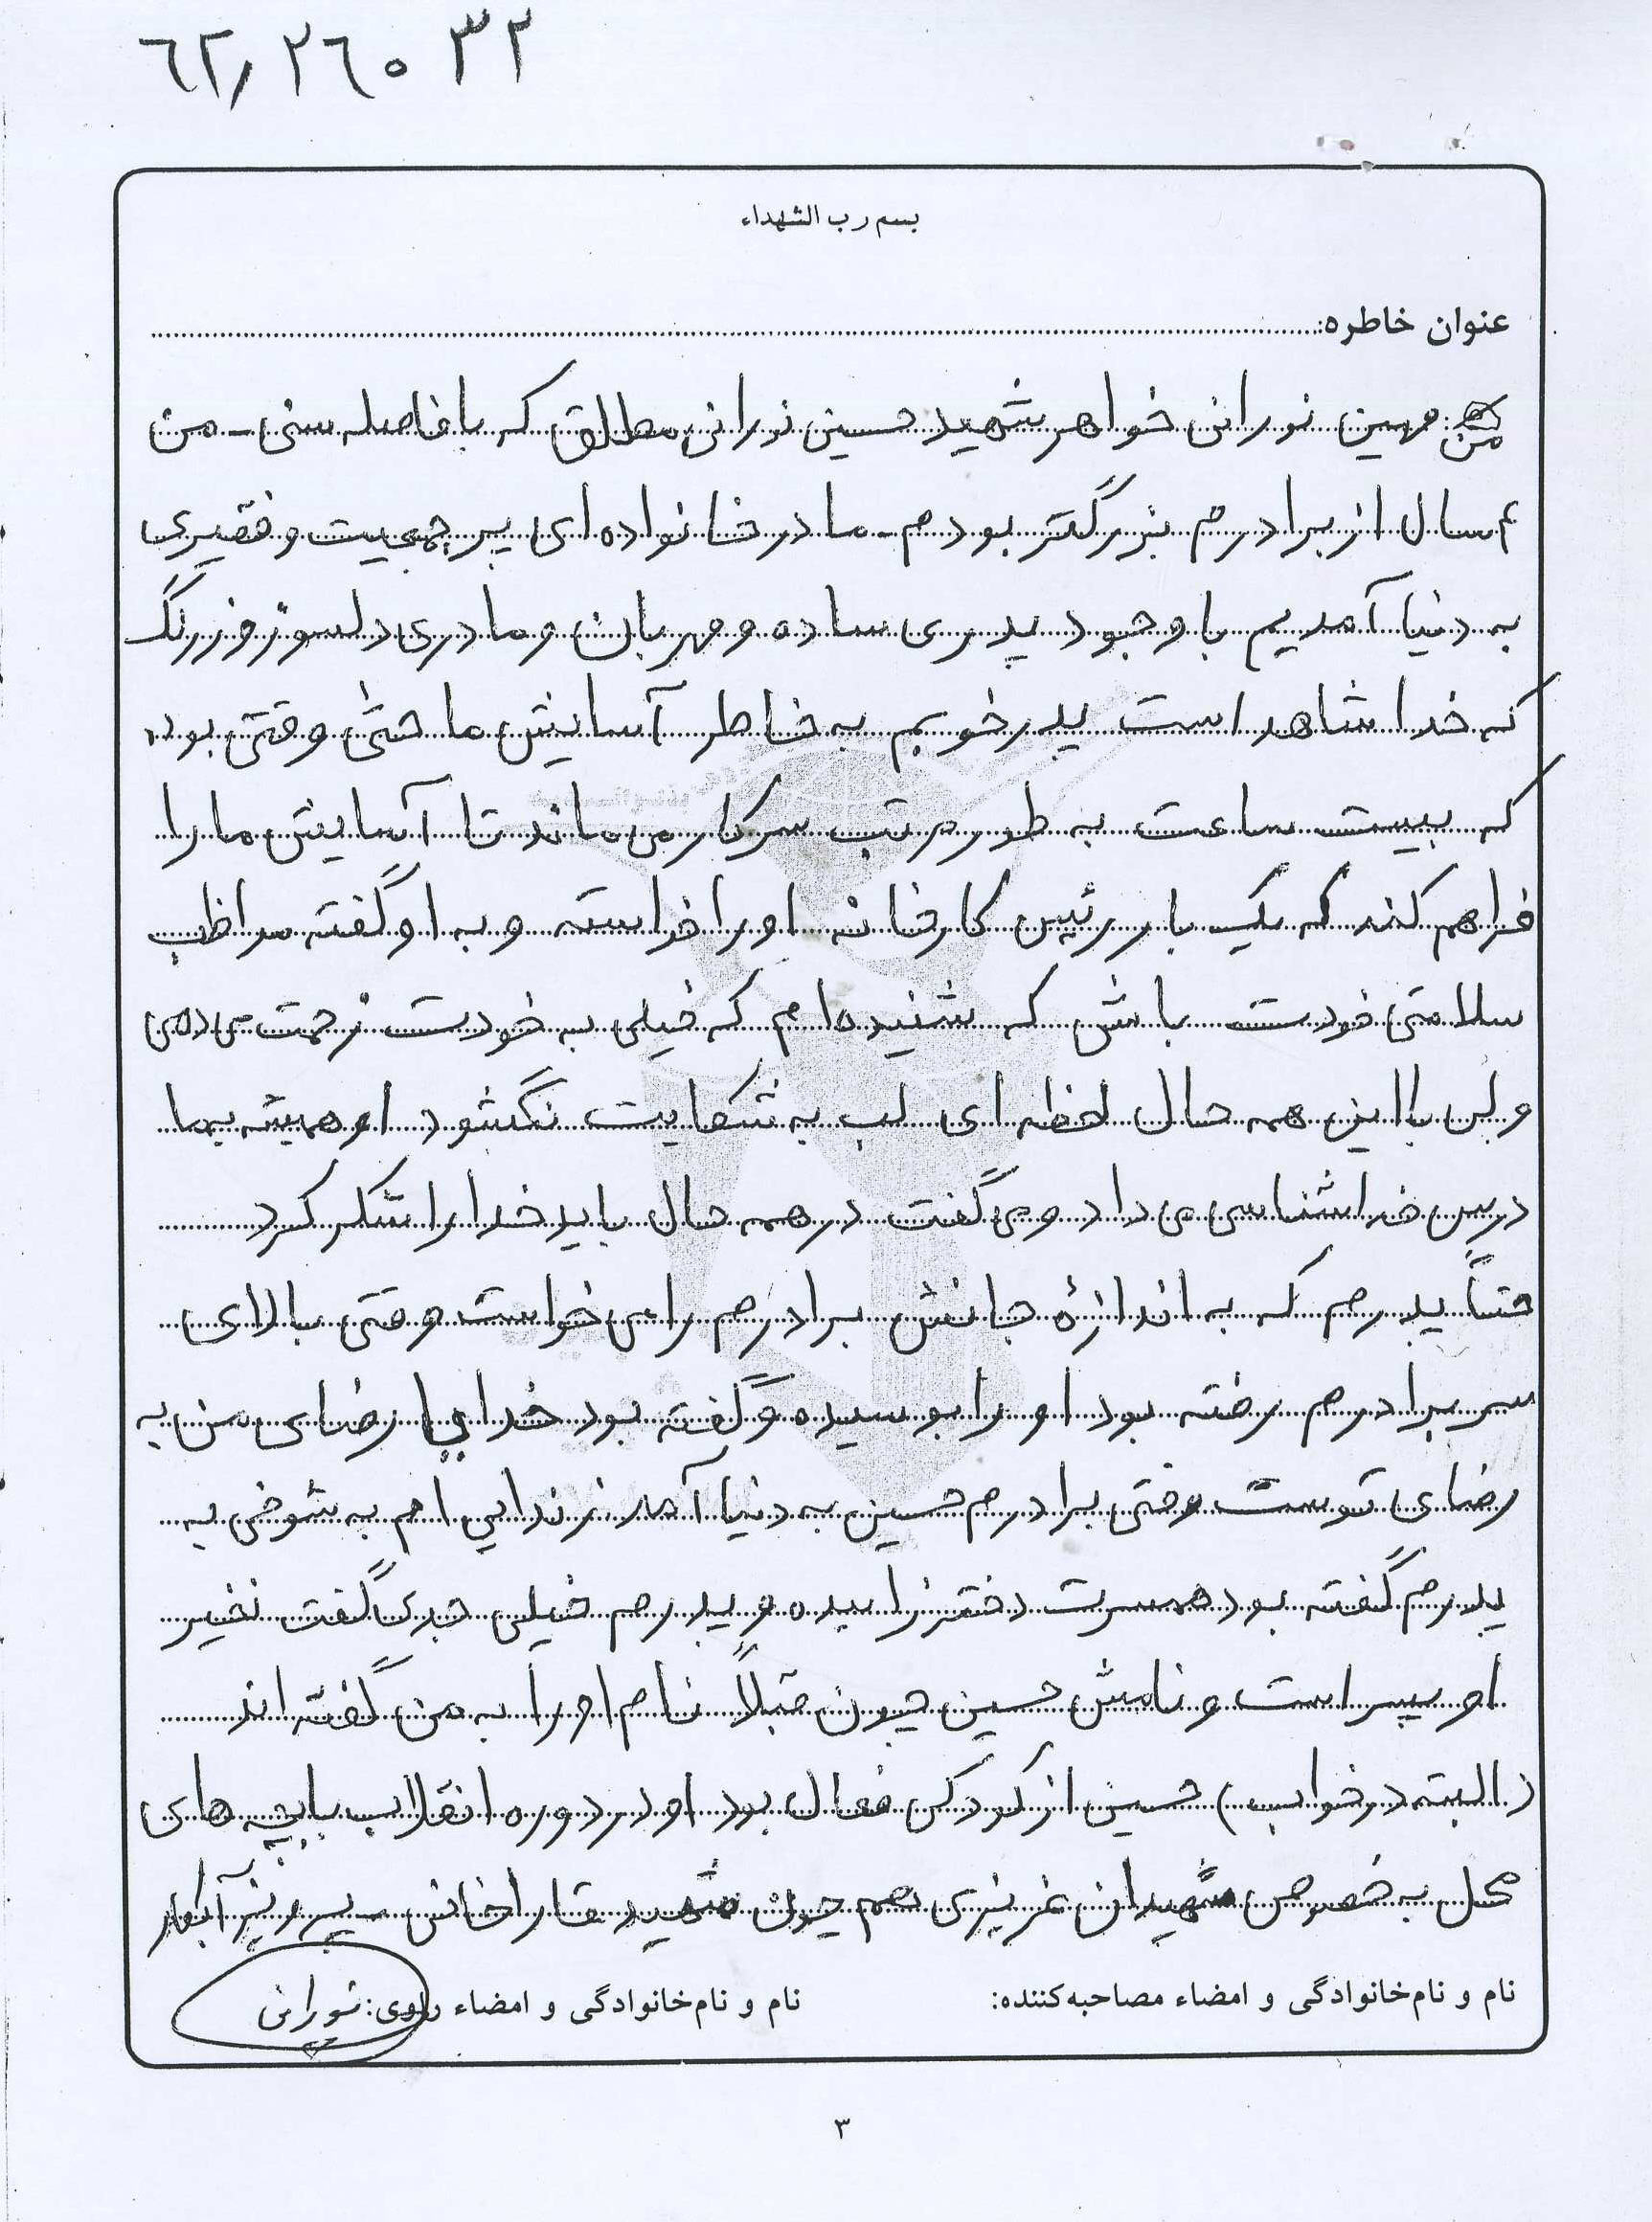 ۶۲/۲۶۰۳۲
بسم رب الشهداء
عنوان خاطره:
من مهین نورانی خواهر شهید حسین نورانی مطلق که با فاصله سنی - من
۴ سال از برادرم بزرگتر بودم - ما در خانواده ای پر جمعیت و فقیری
به دنیا آمدیم با وجود پدری ساده و مهربان و مادری دلسوز و زرنگ
که خدا شاهد است پدر خوبم به خاطر آسایش ما حتی وقتی بوده
که بیست ساعت به طور مرتب سرکار می ماند تا آسایش ما را
فراهم کند که یک بار رئیس کارخانه او را خواسته و به او گفته مراظب
سلامتی خودت باش که شنیده ام که خیلی به خودت زحمت می دهی
ولی با این همه حال لحظه ای لب به شکایت نگشود او همیشه بما
درس خداشناسی می داد و می گفت در همه حال باید خدا را شکر کرد
حتاً پدرم که به اندازهٔ جانش برادرم را می خواست وقتی بالای
سر برادرم رفته بود او را بوسیده و گفته بود خدایا رضای من به
رضای توست وقتی برادرم حسین به دنیا آمد زندایی ام به شوخی به
پدرم گفته بود همسرت دختر زاییده و پدرم خیلی جدی گفت نخیر
او پسر است و نامش حسین چون قبلاً نام او را به من گفته اند
(البته در خواب) حسین از کودکی فعال بود او در دوره انقلاب با بچه های
محل به خصوص شهیدان عزیزی هم چون شهید پرویز آبکار
نام و نام‌خانوادگی و امضاء مصاحبه‌کننده:
نام و نام‌خانوادگی و امضاء راوی: نورانی
۳